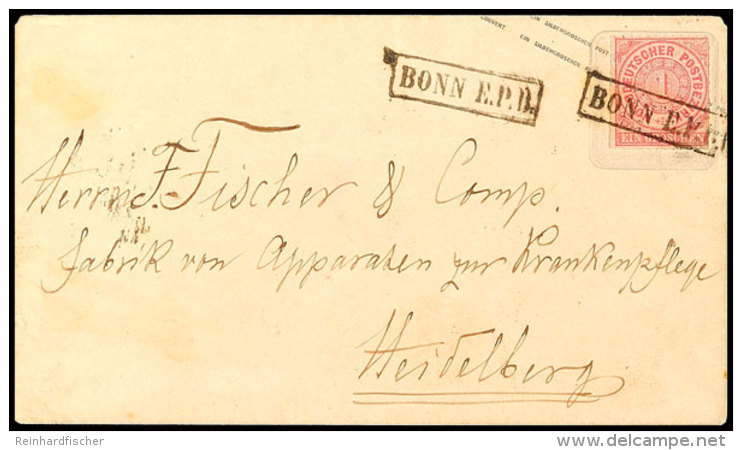 EIN SILBERGROSCHEN POST
COUVERT EIN SILBERGROSCHEN POST
DEUTSCHER POSTBEZ
1
EIN GROSCHEN
BONN E.P.D.
BONN E.P.D.
Herrn F. Fischer & Comp.
Fabrik von Apparaten zur Krankenpflege
Heidelberg
Reinhardfischer
delcampe.net